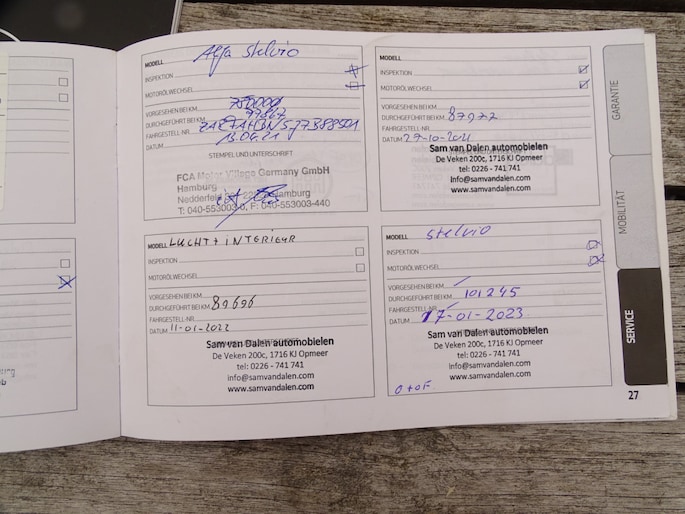 MODELL Alfa Stelvio
INSPEKTION
MOTORÖLWECHSEL
VORGESEHEN BEI KM
DURCHGEFÜHRT BEI KM
FAHRGESTELL-NR.
DATUM 13.06.21
STEMPEL UND UNTERSCHRIFT
FCA Motor Village Germany GmbH
Hamburg
Hamburg
T: 040-553003-0, F: 040-553003-440
MODELL
INSPEKTION
MOTORÖLWECHSEL
VORGESEHEN BEI KM
DURCHGEFÜHRT BEI KM 87972
FAHRGESTELL-NR.
DATUM 27-10-2021
Sam van Dalen automobielen
De Veken 200c, 1716 KJ Opmeer
tel: 0226 - 741 741
info@samvandalen.com
www.samvandalen.com
MODELL LUCHT + INTERIEUR
INSPEKTION
MOTORÖLWECHSEL
VORGESEHEN BEI KM
DURCHGEFÜHRT BEI KM 89696
FAHRGESTELL-NR.
DATUM 11-01-2022
Sam van Dalen automobielen
De Veken 200c, 1716 KJ Opmeer
tel: 0226 - 741 741
info@samvandalen.com
www.samvandalen.com
MODELL Stelvio
INSPEKTION
MOTORÖLWECHSEL
VORGESEHEN BEI KM
DURCHGEFÜHRT BEI KM 101245
FAHRGESTELL-NR.
DATUM 17-01-2023
Sam van Dalen automobielen
De Veken 200c, 1716 KJ Opmeer
tel: 0226 - 741 741
info@samvandalen.com
www.samvandalen.com
O+OF
GARANTIE
MOBILITÄT
SERVICE
27